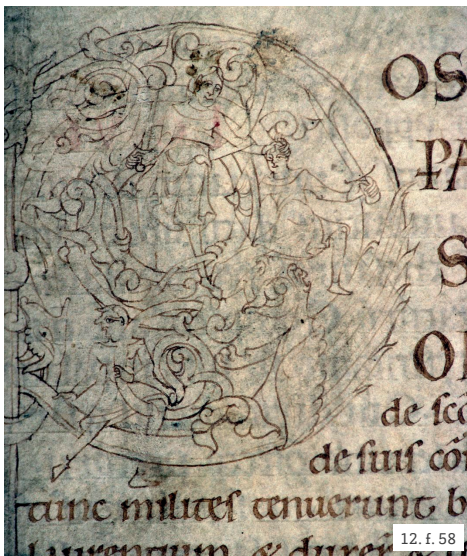 OS
PA
S
OI
de scō
de suis cōr
tunc milites tenuerunt b
laurentium, & duxer̄
12. f. 58